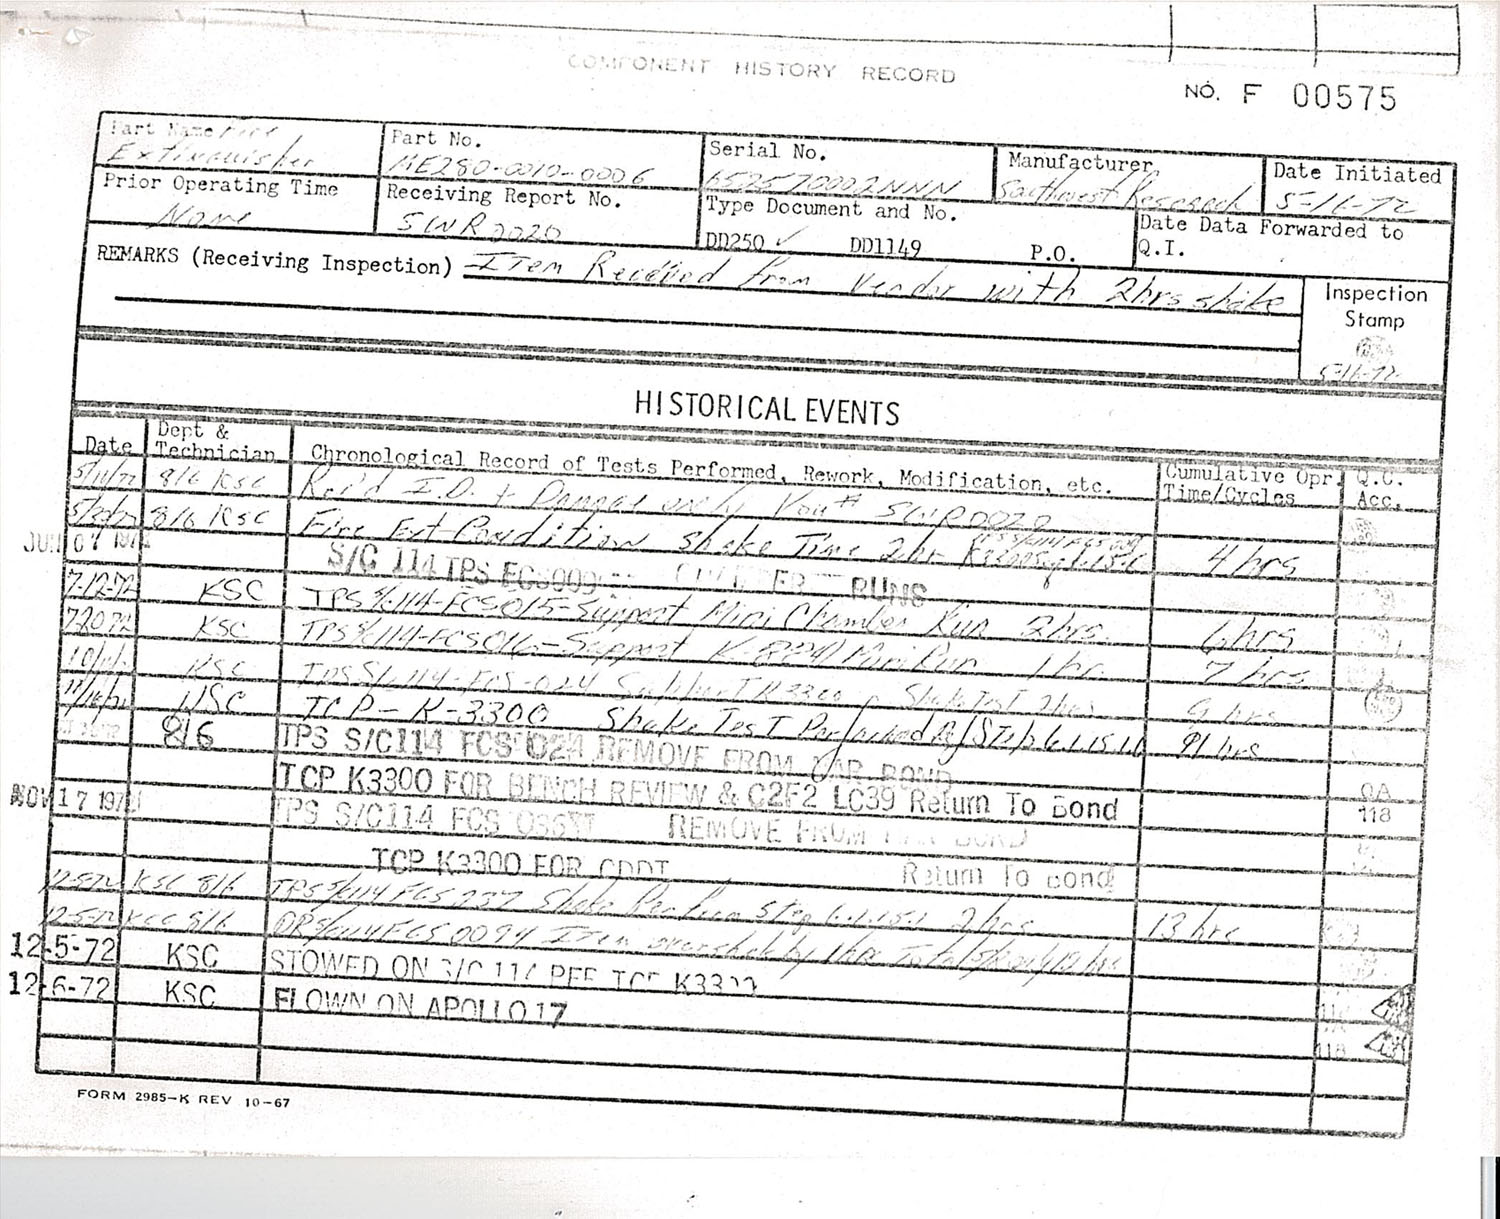 COMPONENT HISTORY RECORD
NO. F 00575
Part Name Fire Extinguisher
Part No. ME280-0010-0006
Serial No. 652570002NNN
Manufacturer Southwest Research
Date Initiated 5-16-72
Prior Operating Time None
Receiving Report No. SWR0020
Type Document and No.
DD250 ✓ DD1149 P.O.
Date Data Forwarded to Q.I.
REMARKS (Receiving Inspection) Item Received from Vendor with 2hrs shake
Inspection Stamp
5-16-72
HISTORICAL EVENTS
Date Dept & Technician Chronological Record of Tests Performed, Rework, Modification, etc. Cumulative Opr. Time/Cycles Q.C. Acc.
816 KSC Rec'd I.D. + Damage only SWR0020
816 KSC Fire Ext Condition Shake Time 2hr 4 hrs
07 S/C 114 TPS RUNS
7-12-72 KSC TPS S/C 114-FCS015-Support Mini Chamber Run 2hrs. 6 hrs
7-20-72 KSC TPS S/C 114-FCS016-Support Run 1 hr. 7 hrs
KSC TPS S/C 114-FCS-024 Support K3300 Shake Test 2hrs 9 hrs
KSC TCP-K-3300 Shake Test Performed
816 TPS S/C114 FCS 024 REMOVE FROM BOND
TCP K3300 FOR BENCH REVIEW & C2F2 LC39 Return To Bond QA 118
NOV 17 197 TPS S/C114 FCS REMOVE FROM BOND
TCP K3300 FOR CDDT Return To Bond
KSC 816 TPS S/C 114 FCS Shake Step 2 hrs 13 hrs
12-5-72 816 DR S/C 114 FCS 0094 Item by
12-5-72 KSC STOWED ON S/C 114 PER TCP K3300
12-6-72 KSC FLOWN ON APOLLO 17
118
FORM 2985-K REV 10-67